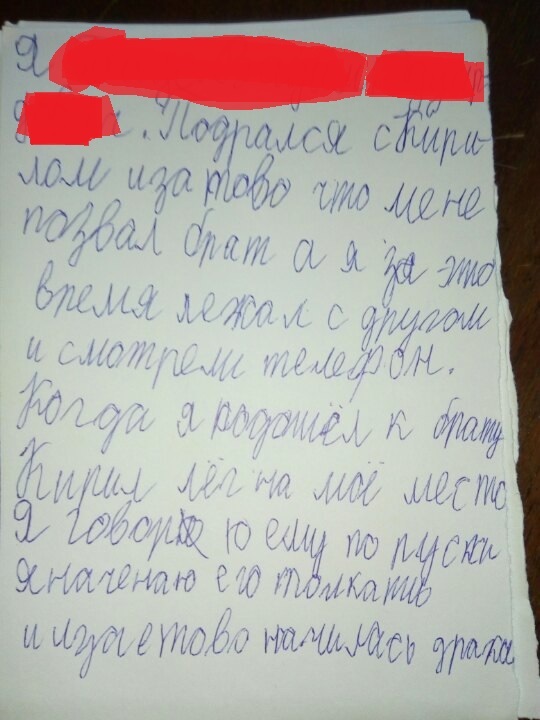 Я
. Подрался с Кири-
лом изатово что мене
позвал брат а я за это
время лежал с другом
и смотрели телефон.
Когда я подошёл к брату
Кирил лёг на моё место
Я говорю ему по руски
я наченаю его толкать
и изаетово началась драка